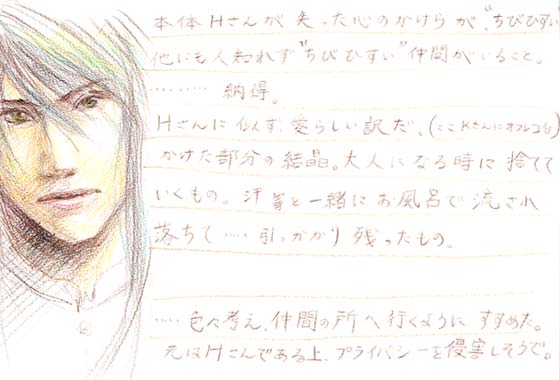 本体Hさんが失った心のかけらが、"ちびひすい
他にも人知れず"ちびひすい"仲間がいること。
………… 納得。
Hさんに似ず、愛らしい訳だ。(ここKさんにオフレコね)
かけた部分の結晶。大人になる時に捨てて
いくもの。汗等と一緒にお風呂で流され
落ちて……引っかかり残ったもの。
……色々考え、仲間の所へ行くようにすすめた。
元はHさんである上、プライバシーを侵害しそうで。